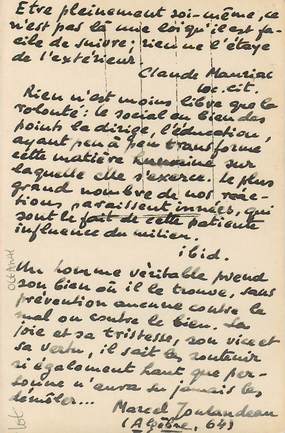 Etre pleinement soi-même, ce
n'est pas là une loi qu'il est fa-
cile de suivre; rien ne l'étaye
de l'extérieur.
Claude Mauriac
loc. cit.
Rien n'est moins libre que la
volonté: le social en bien des
points la dirige, l'éducation,
ayant peu à peu transformé
cette matière humaine sur
laquelle elle s'exerce. Le plus
grand nombre de nos réac-
tions paraissent innées, qui
sont le fait de cette patiente
influence du milieu.
ibid.
Un homme véritable prend
son bien où il le trouve, sans
prévention aucune contre le
mal ou contre le bien. La
joie et sa tristesse, son vice et
sa vertu, il sait les soutenir
si également haut que per-
sonne n'aura su jamais les
démêler...
Marcel Jouhandeau
(Algèbre, 64)